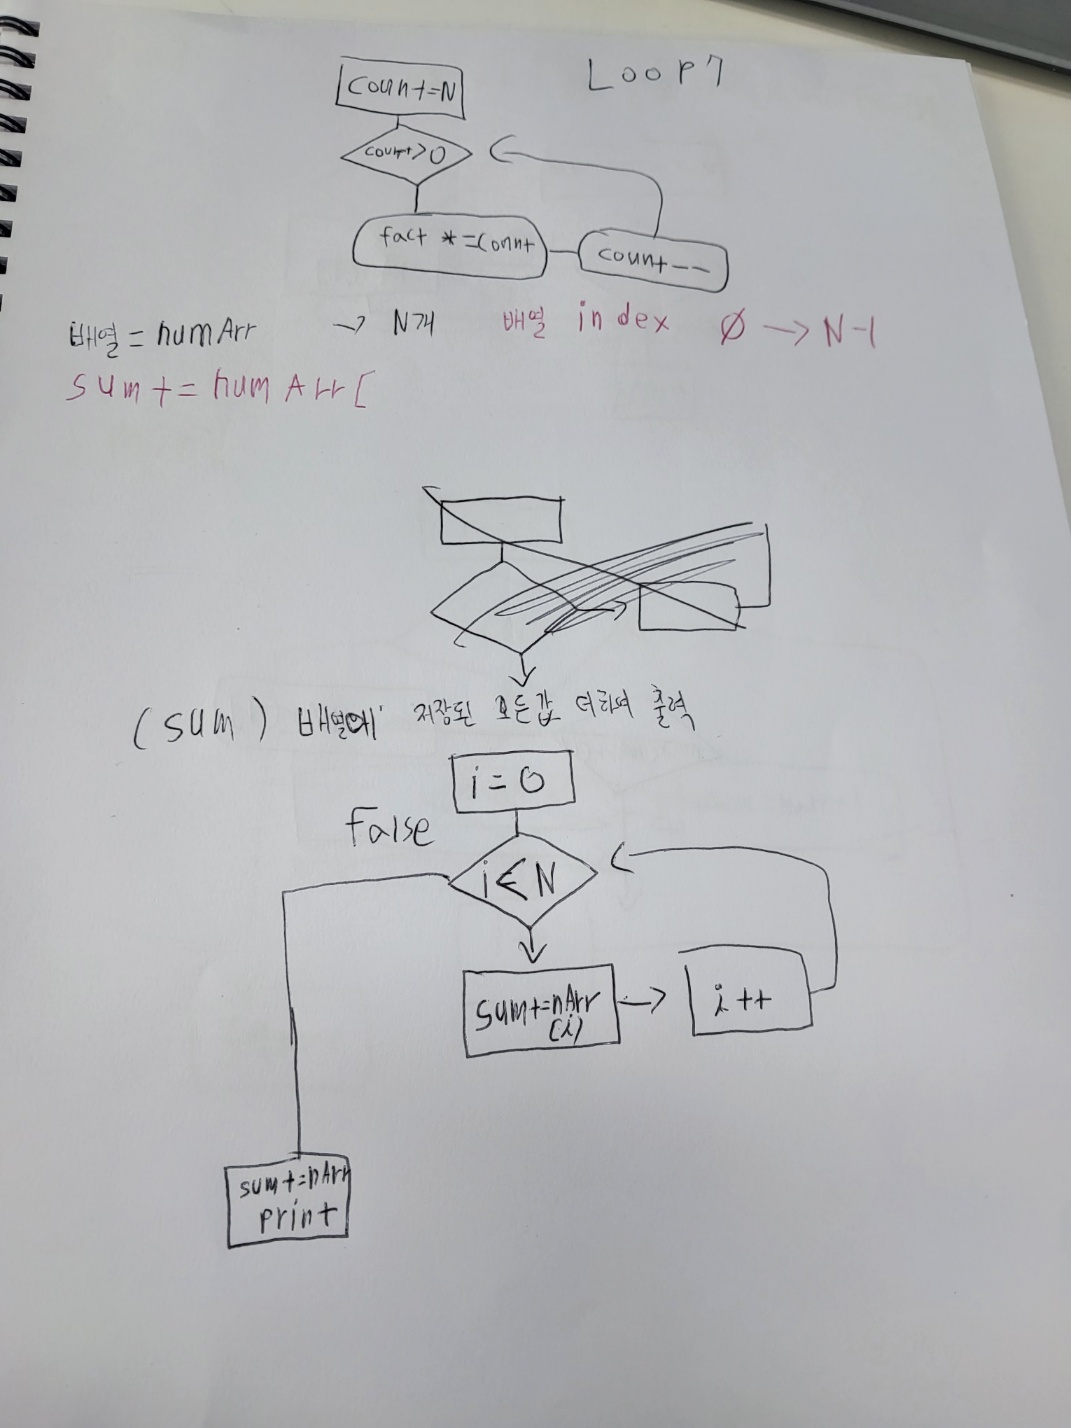 Loop 7
count=N
count>0
fact *=count
count--
배열=numArr → N개 배열 index 0 → N-1
sum+=numArr[
(sum) 배열에 저장된 모든값 더하여 출력
i=0
False
N
sum+=nArr
(i)
i++
sum+=nArr
print